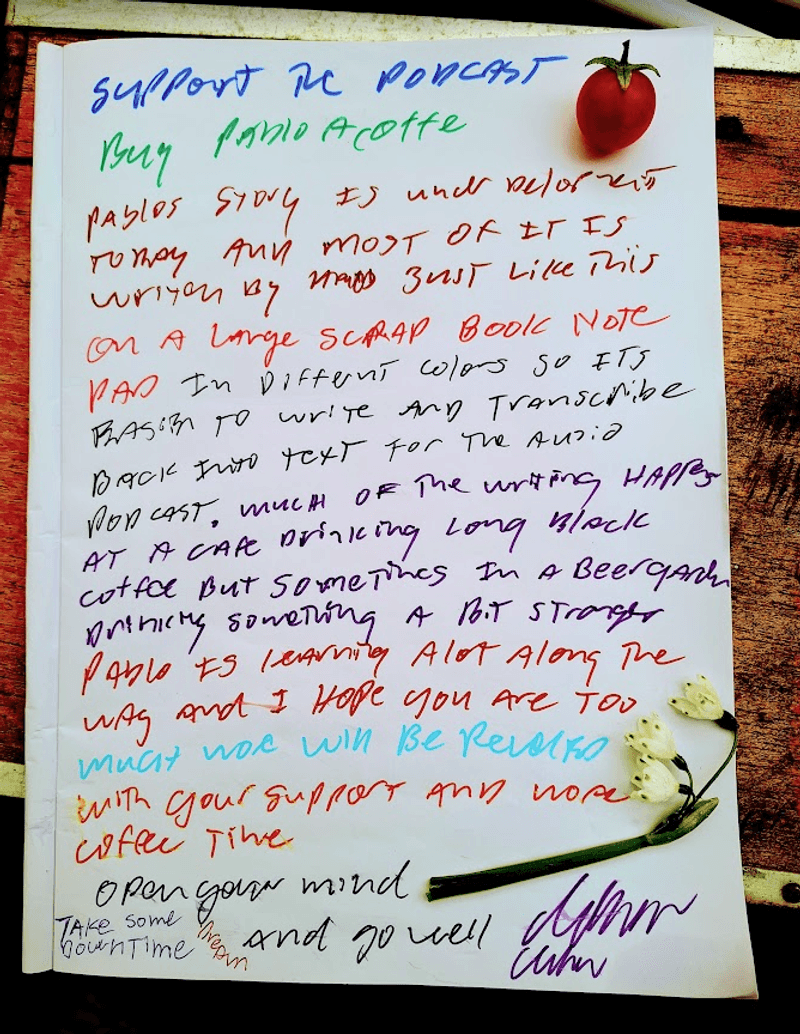 SUPPORT THE PODCAST
Buy PABLO A coffe
PABLOS STORY IS under
TODAY AND MOST OF IT IS
written By HAND JUST Like THis
ON A Large SCRAP BOOK NOTE
PAD In DIFFERNT colors so ITS
EASIER TO write AND Transcribe
BACK INTO TEXT For THe AUDIO
PODCAST. MUCH OF THe writing HAPPens
AT A CAFE Drinking Long Black
coffee But SOMETimes In A Beergarden
Drinking SOMETHing A BIT stronger
PABLO IS learning Alot Along The
way and I HOPE you Are TOO
MUCH more will Be Reveled
WITH your support AND more
coffee Time
open your mind
and go well
TAKE some
DownTime
Dream